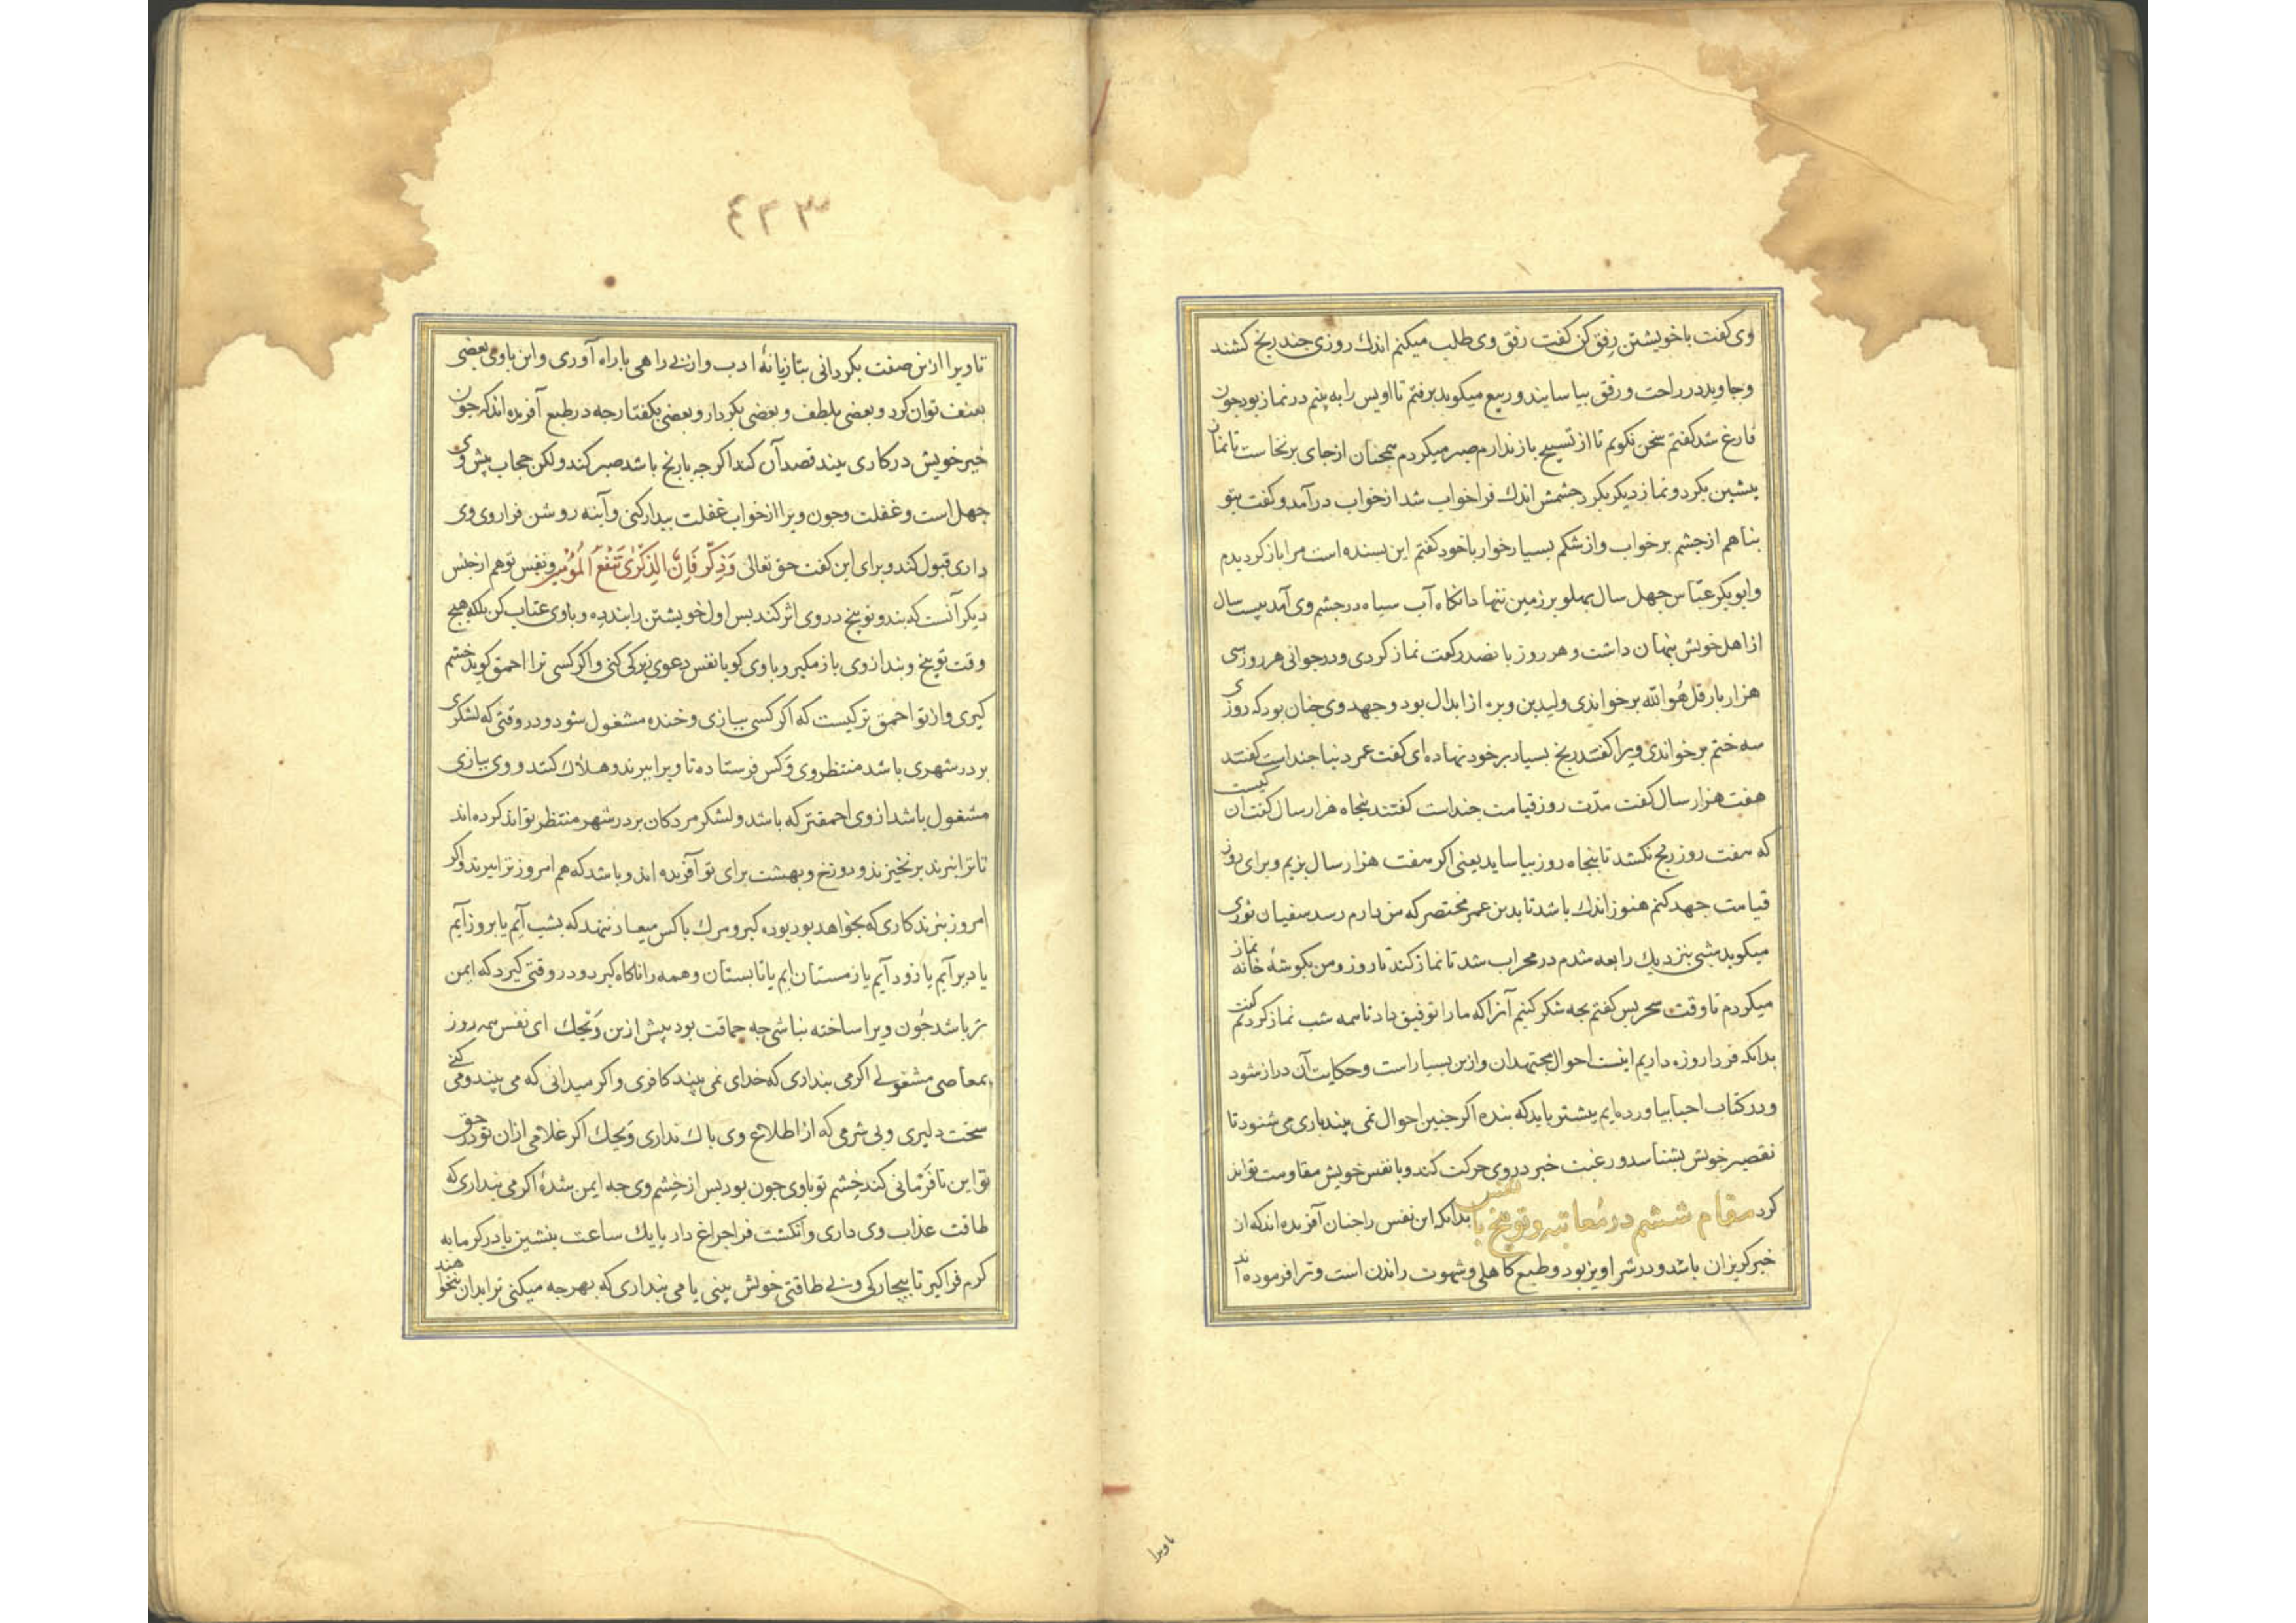 وی گفت با خویشتن رفق کن گفت رفق وی طلب میکنم اندك روزی چند رنج کشند
و جاوید در راحت و رفق بیاسایند و ربیع میکوید برفتم تا اویس را به بینم در نماز بود جون
فارغ شد کفتم سخن نکویم تا از تسبیح باز ندارم صبر میکردم همجنان از جای برنخاست تا نماز
بیشین بکرد و نماز دیکر بکرد جشمش اندك فرا خواب شد از خواب در آمد و گفت بتو
بناهم از جشم بر خواب و از شکم بسیار خوار با خود کفتم این بسنده است مرا باز کردیدم
و ابوبکر عیاش جهل سال بهلو بر زمین ننهاد انکاه آب سیاه در جشم وی آمد بیست سال
از اهل خویش بنهان داشت و هر روز بانصد رکعت نماز کردی و در جوانی هر روز سی
هزار بار قل هو الله بر خواندی و لیدبن وبره از ابدال بود و جهد وی جنان بود که روزی
سه ختم بر خواندی ویرا گفتند رنج بسیار بر خود نهاده ای گفت عمر دنیا جند است گفتند
هفت هزار سال گفت مدّت روز قیامت جند است گفتند بنجاه هزار سال گفت آن کیست
که هفت روز رنج نکشد تا بنجاه روز بیاساید یعنی اکر هفت هزار سال بزیم و برای روز
قیامت جهد کنم هنوز اندك باشد تا بدین عمر مختصر که من دارم رسد سفیان ثوری
میکوید شبی بنزدیك رابعه شدم در محراب شد تا نماز کند تا روز و من بکوشهٔ خانه نماز
میکردم تا وقت سحر بس کفتم بجه شکر کنیم آنرا که ما را توفیق داد تا همه شب نماز کردیم گفت
بدانکه فردا روزه داریم اینست احوال مجتهدان و ازین بسیار است و حکایت آن دراز شود
و در کتاب احیا بیاورده ایم بیشتر باید که بنده اکر جنین احوال نمی بیند باری می شنود تا
تقصیر خویش بشناسد و رغبت خیر در وی حرکت کند و با نفس خویش مقاومت تواند
کرد مقام ششم در مُعاتبه و توبیخ با نفس بدانکه این نفس را جنان آفریده اند که از
خیر کریزان باشد و در شر آویز بود و طبع کاهلی و شهوت راندن است و ترا فرموده اند
تا ویرا
٤٣٣
تا ویرا ازین صفت بکردانی بتازیانهٔ ادب و از بی راهی با راه آوری و این با وی بعضی
بعنف توان کرد و بعضی بلطف و بعضی بکردار و بعضی بکفتار جه در طبع آفریده اند که جون
خیر خویش در کاری بیند قصد آن کند اکر جه با رنج باشد صبر کند و لکن حجاب بیش وی
جهل است و غفلت و جون ویرا از خواب غفلت بیدار کنی و آینه روشن فرا روی وی
داری قبول کند و برای این گفت حق تعالی وَذَكِّرْ فَإِنَّ الذِّكْرَىٰ تَنْفَعُ الْمُؤْمِنِين و نفس تو هم از جنس
دیکر آنست که بند و توبیخ در وی اثر کند بس اول خویشتن را بند ده و با وی عتاب کن بلکه هیج
وقت توبیخ و بند از وی باز مکیر و با وی کو یا نفس دعوی زیرکی کنی و اکر کسی ترا احمق کوید خشم
کیری و از تو احمق تر کیست که اکر کسی ببازی و خنده مشغول شود در وقتی که لشکری
بر در شهری باشد منتظر وی و کس فرستاده تا ویرا ببرند و هلاك کنند و وی ببازی
مشغول باشد از وی احمقتر که باشد و لشکر مردکان بر در شهر منتظر تواند کرده اند
تا ترا نبرند برنخیزند و دوزخ و بهشت برای تو آفریده اند و باشد که هم امروز ترا ببرند و اکر
امروز نبرند کاری که بخواهد بود بوده کیر و مرك با کس میعاد ننهد که بشب آیم یا بروز آیم
یا دیر آیم یا زود آیم یا زمستان ایم یا تابستان و همه را ناکاه کیرد و در وقتی کیرد که ایمن
تر باشد جُون ویرا ساخته نباشی جه حماقت بود بیش ازین وَیْحَك ای نفس همه روز
بمعاصی مشغولی اکر می بنداری که خدای نمی بیند کافری و اکر میدانی که می بیند و می کنی
سخت دلیری و بی شرمی که از اطلاع وی باك نداری وَیْحَك اکر غلامی از ان تو در حق
تو این نافرمانی کند خشم تو با وی جون بود بس از خشم وی جه ایمن شدهٔ اکر می بنداری که
طاقت عذاب وی داری و انکشت فرا جراغ دار یا یك ساعت بنشین یا در کرمابه
کرم فراکیر تا بیچارکی و بی طاقتی خویش ببینی یا می بنداری که بهرجه میکنی ترا بدان نخواهند